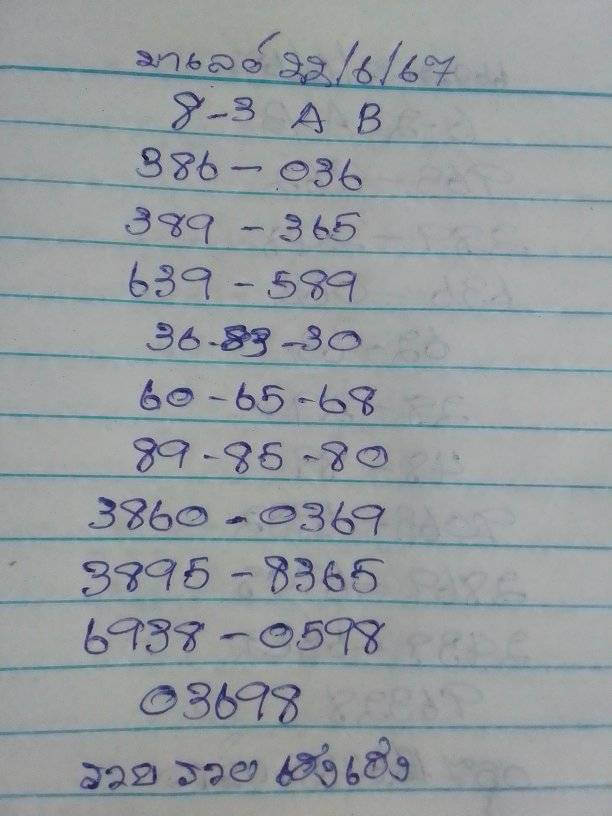 มาเลย์ 22/6/67
8-3 A B
386-036
389-365
639-589
36-83-30
60-65-68
89-85-80
3860-0369
3895-8365
6938-0598
03698
รวย รวย เฮงเฮง